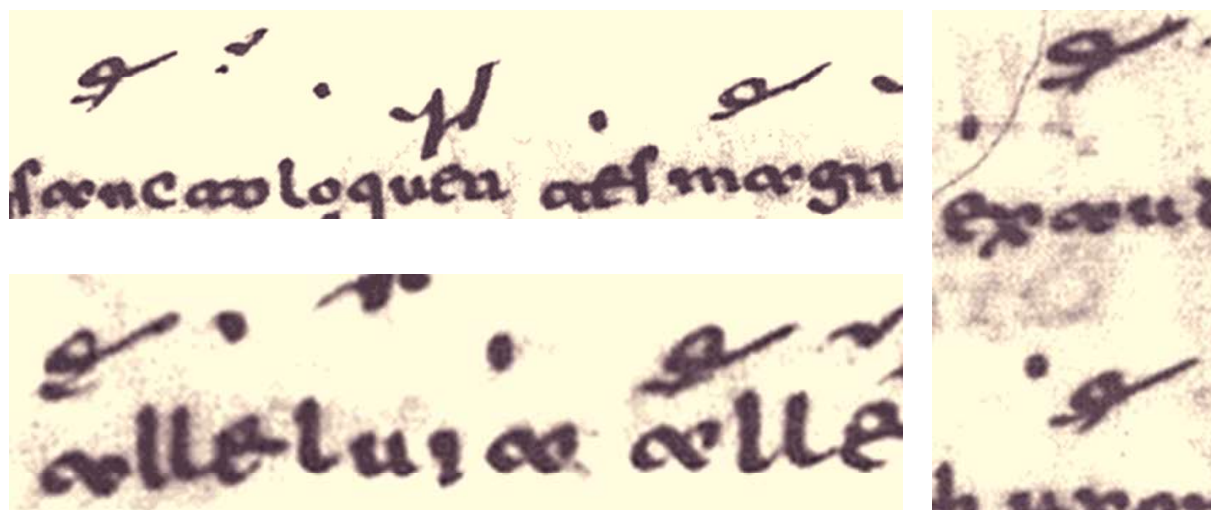 sancto loquen tes magn
alleluia alle
exaud